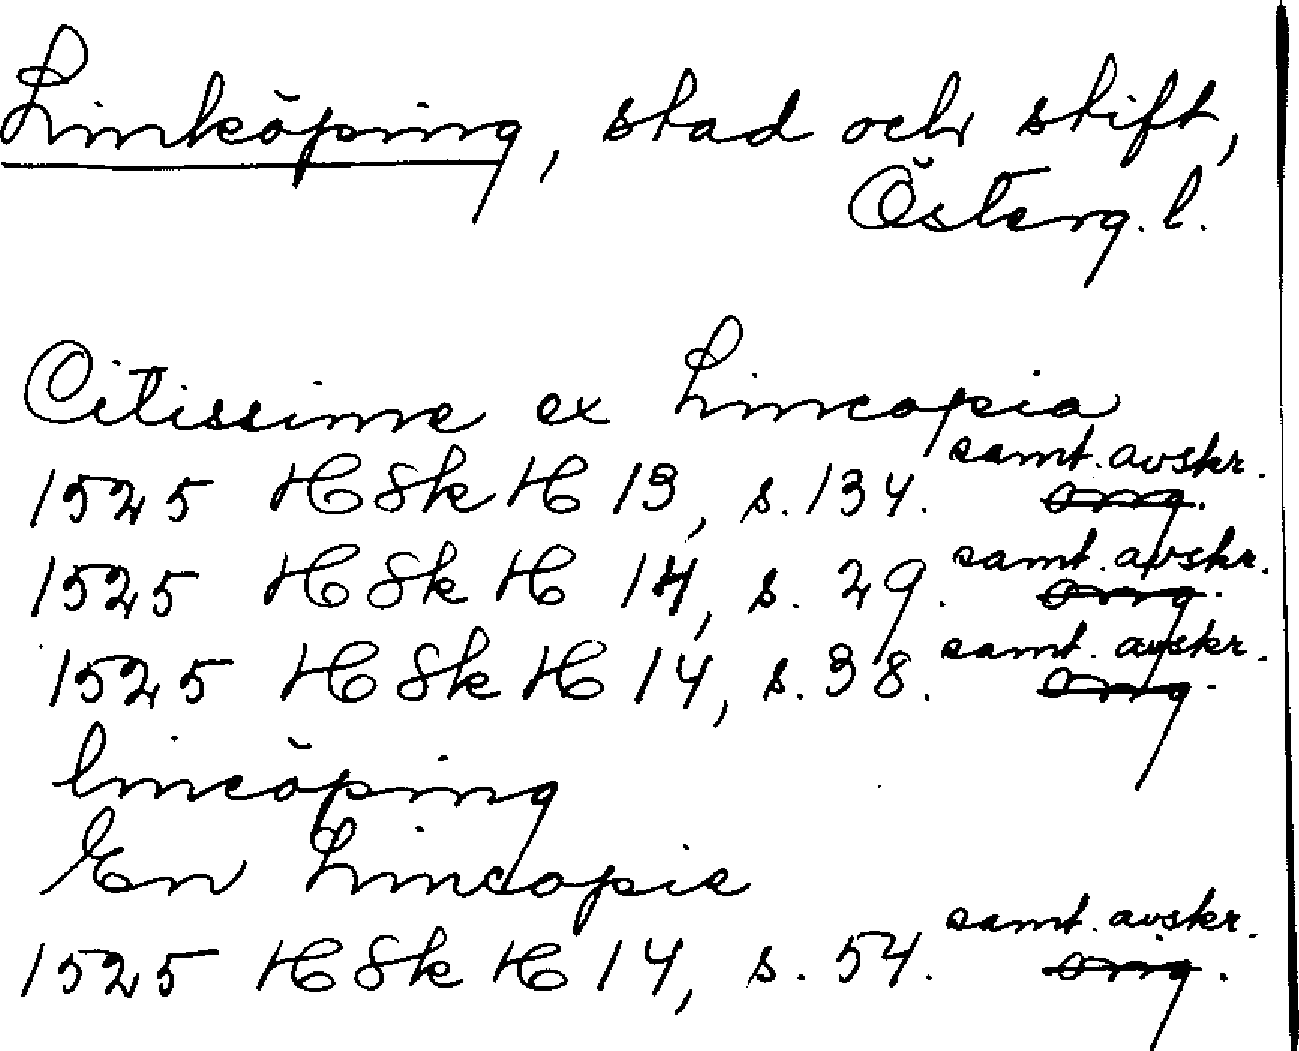 Linköping, stad och stift,
Österg. l.
Citissime ex Lincopia
samt. avskr.
1525 HSk H 13, s. 134. orig.
samt. avskr.
1525 HSk H 14, s. 29. orig.
samt. avskr.
1525 HSk H 14, s. 38. orig.
lincöping
En Lincopie
samt. avskr.
1525 HSk H 14, s. 54. orig.